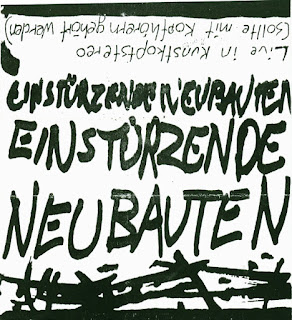 Live in Kunstkopfstereo
(sollte mit Kopfhörern gehört werden)
EINSTÜRZENDE NEUBAUTEN
EINSTÜRZENDE
NEUBAUTEN